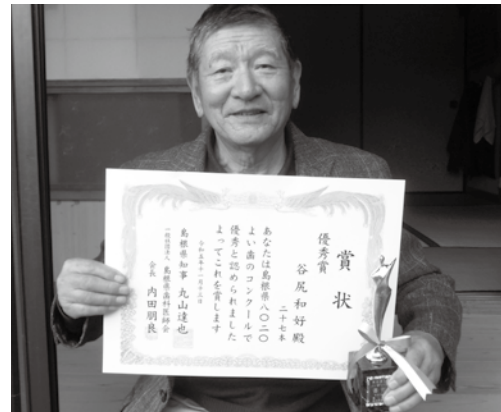 賞状
優秀賞
谷尻和好殿
二十七本
あなたは島根県八〇二〇
よい歯のコンクールで
優秀と認められました
よってこれを賞します
令和五年十一月十二日
島根県知事 丸山達也
一般社団法人 島根県歯科医師会
会長 内田朋良